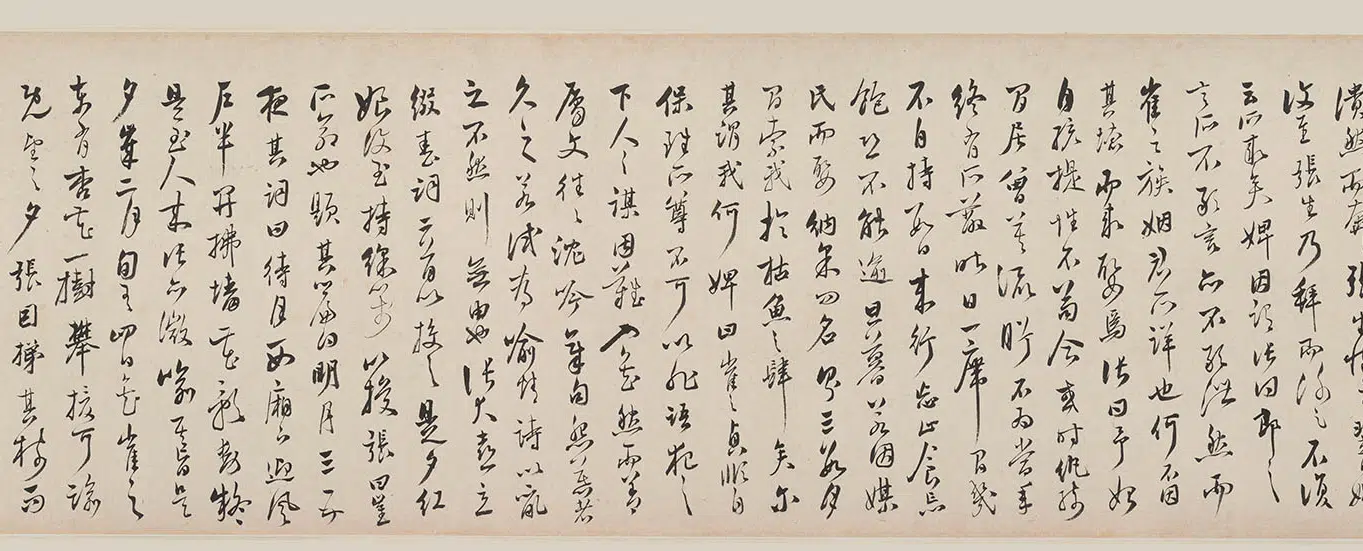 潰然而奔張生悔之翌日婢
復至張生乃拜而謝之不復
云所求矣婢因謂張曰郎之
言所不敢言亦不敢泄然而
崔之族姻君所詳也何不因
其德而求娶焉張曰予始
自孩提性不苟合或時紈綺
間居曾莫流盼不為當年
終有所蔽昨日一席間幾
不自持數日來行忘止食忘
飽恐不能逾旦暮若因媒
氏而娶納采問名則三數月
間索我於枯魚之肆矣爾
其謂我何婢曰崔之貞順自
保雖所尊不可以非語犯之
下人之謀固難入矣然而善
屬文往往沈吟章句怨慕者
久之君試為喻情詩以亂
之不然則無由也張大喜立
綴春詞二首以授之是夕紅
娘復至持綵箋以授張曰崔
所命也題其篇曰明月三五
夜其詞曰待月西廂下迎風
戶半開拂墻花影動疑
是玉人來張亦微喻其旨是
夕歲二月旬有四日矣崔之
東有杏花一樹攀援可踰
既望之夕張因梯其樹而